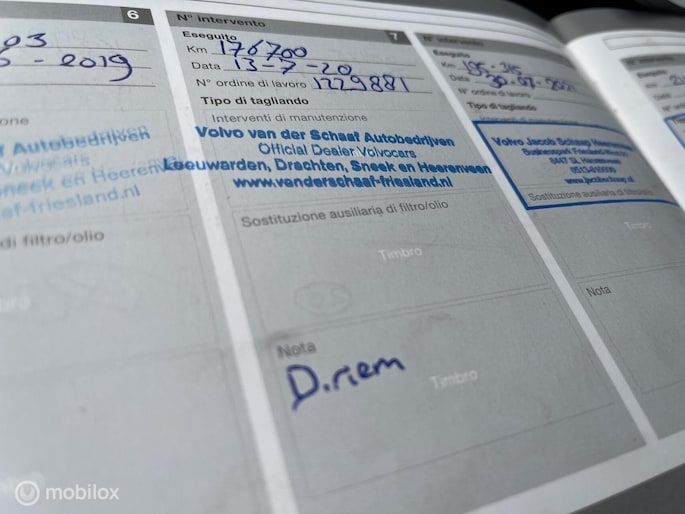 6
03
- 2019
one
Autobedrijven
Volvocars
neek en Heerenveen
af-friesland.nl
di filtro/olio
N° intervento
7
Eseguito
Km 176700
Data 13-7-20
N° ordine di lavoro 1229881
Tipo di tagliando
Interventi di manutenzione
Volvo van der Schaaf Autobedrijven
Official Dealer Volvocars
Leeuwarden, Drachten, Sneek en Heerenveen
www.vanderschaaf-friesland.nl
Sostituzione ausiliaria di filtro/olio
Timbro
Nota
D.riem
Timbro
N° intervento
Eseguito
Km
Data 30-07-
N° ordine di lavoro
Tipo di tagliando
Volvo Jacob Schaap Heerenveen
www.jacobschaap.nl
Sostituzione ausiliaria di filtro/olio
Timbro
Nota
mobilox